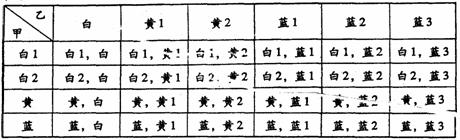 乙
甲 白 黄1 黄2 蓝1 蓝2 蓝3
白1 白1, 白 白1, 黄1 白1, 黄2 白1, 蓝1 白1, 蓝2 白1, 蓝3
白2 白2, 白 白2, 黄1 白2, 黄2 白2, 蓝1 白2, 蓝2 白2, 蓝3
黄 黄, 白 黄, 黄1 黄, 黄2 黄, 蓝1 黄, 蓝2 黄, 蓝3
蓝 蓝, 白 蓝, 黄1 蓝, 黄2 蓝, 蓝1 蓝, 蓝2 蓝, 蓝3